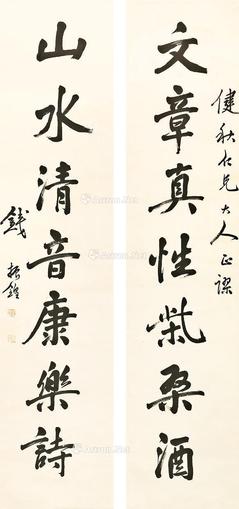 健秋仁兄大人正謬
文章真性柴桒酒
山水清音康樂詩
錢振鍠